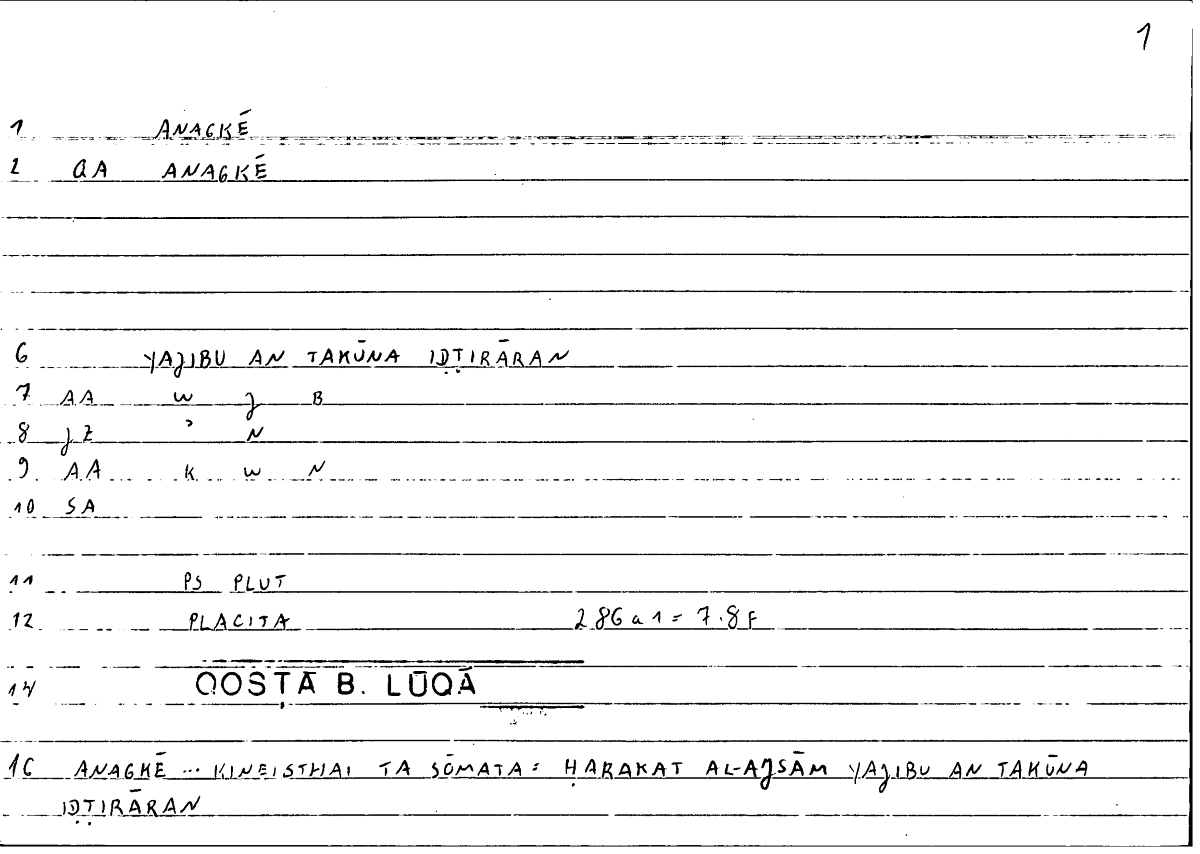 1
1 ANAGKĒ
2 QA ANAGKĒ
6 YAJIBU AN TAKŪNA IḌṬIRĀRAN
7 AA W J B
8 JZ ʾ N
9 AA K W N
10 SA
11 PS PLUT
12 PLACITA 286a1 = 7.8F
14 QOSṬĀ B. LŪQĀ
16 ANAGKĒ ... KINEISTHAI TA SŌMATA: ḤARAKAT AL-AJSĀM YAJIBU AN TAKŪNA
IḌṬIRĀRAN